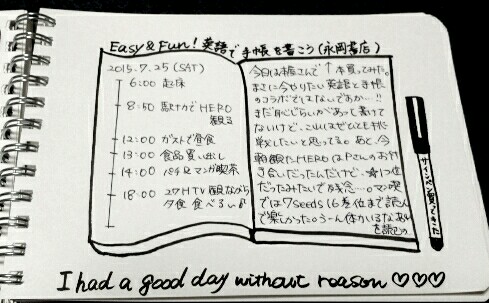 Easy & Fun! 英語で手帳を書こう(永岡書店)
2015.7.25 (SAT)
6:00 起床
8:50 駅ナカでHERO
観る
12:00 ガストで昼食
13:00 食品買い出し
14:00 マンガ喫茶
18:00 27HTV観ながら
夕食 食べるぅ
今日は本屋さんで↑本買ってみた。
まさに今やりたい英語と手帳
のコラボではないですか…!!
まだ
ないけど、これはぜひとも挑
戦したいと思ってる。あと、今
朝観たHEROはPさんのおや
き合いだったんだけど、
だったみたいで残念…。マン喫
では7seeds16巻位まで読ん
で楽しかった。うーん体がいる
を読む
サインペン買ってきた
I had a good day without reason ♡♡♡